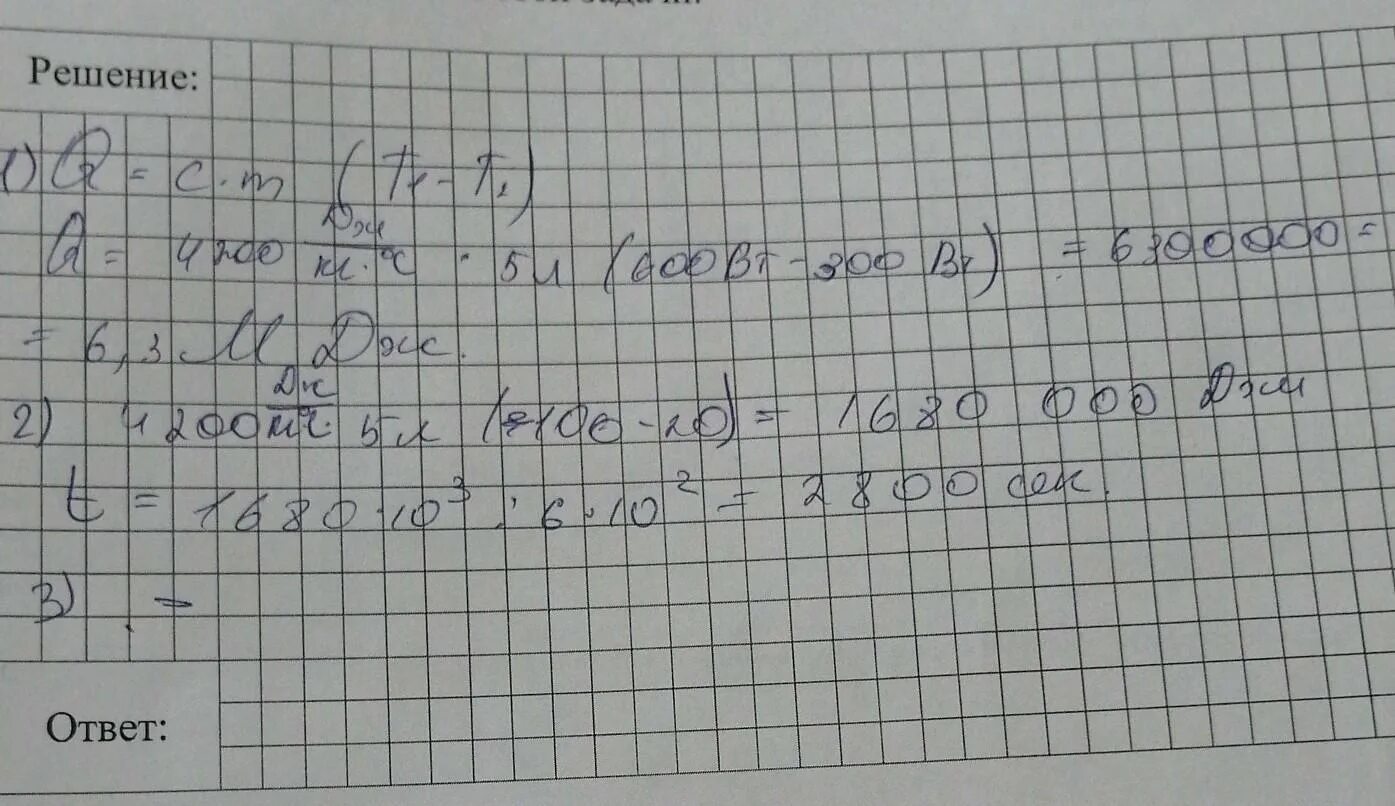 Решение:
1) Q = c·m (t₁ - t₂)
Q = 4200 Дж/кг·°C · 5л (600Вт - 300 Вт) = 6300000 =
= 6,3 М Дж.
2) 4200 Дж/кг°C · 5л (100 - 20) = 1680 000 Дж
t = 1680·10³ : 6·10² = 2800 сек.
3) -
Ответ: